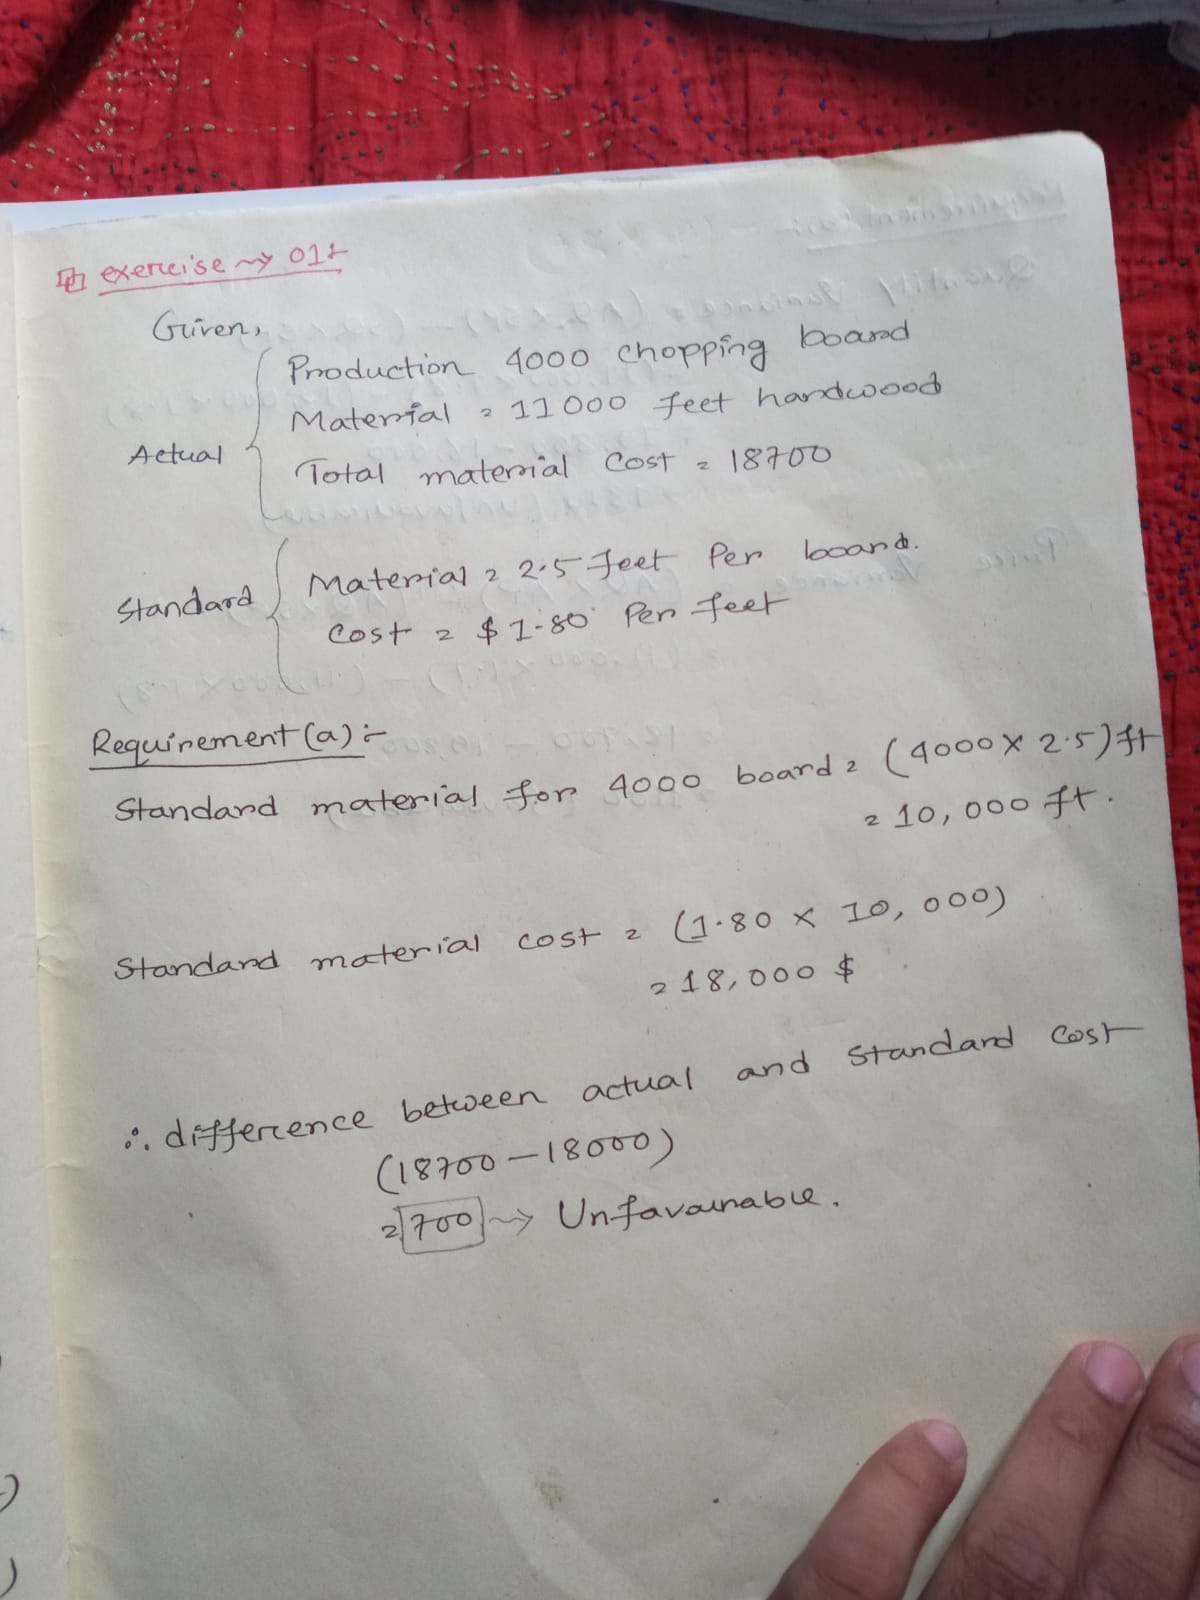 exercise → 01:-
Given,
Production 4000 chopping board
Material = 11000 feet hardwood
Actual
Total material Cost = 18700
Material = 2.5 feet Per board.
Standard
Cost = $1.80 Per feet
Requirement (a) :-
Standard material for 4000 board = (4000 x 2.5) ft
= 10,000 ft.
Standard material cost = (1.80 x 10,000)
= 18,000 $
∴ difference between actual and standard cost
(18700 – 18000)
= 700 → Unfavourable.